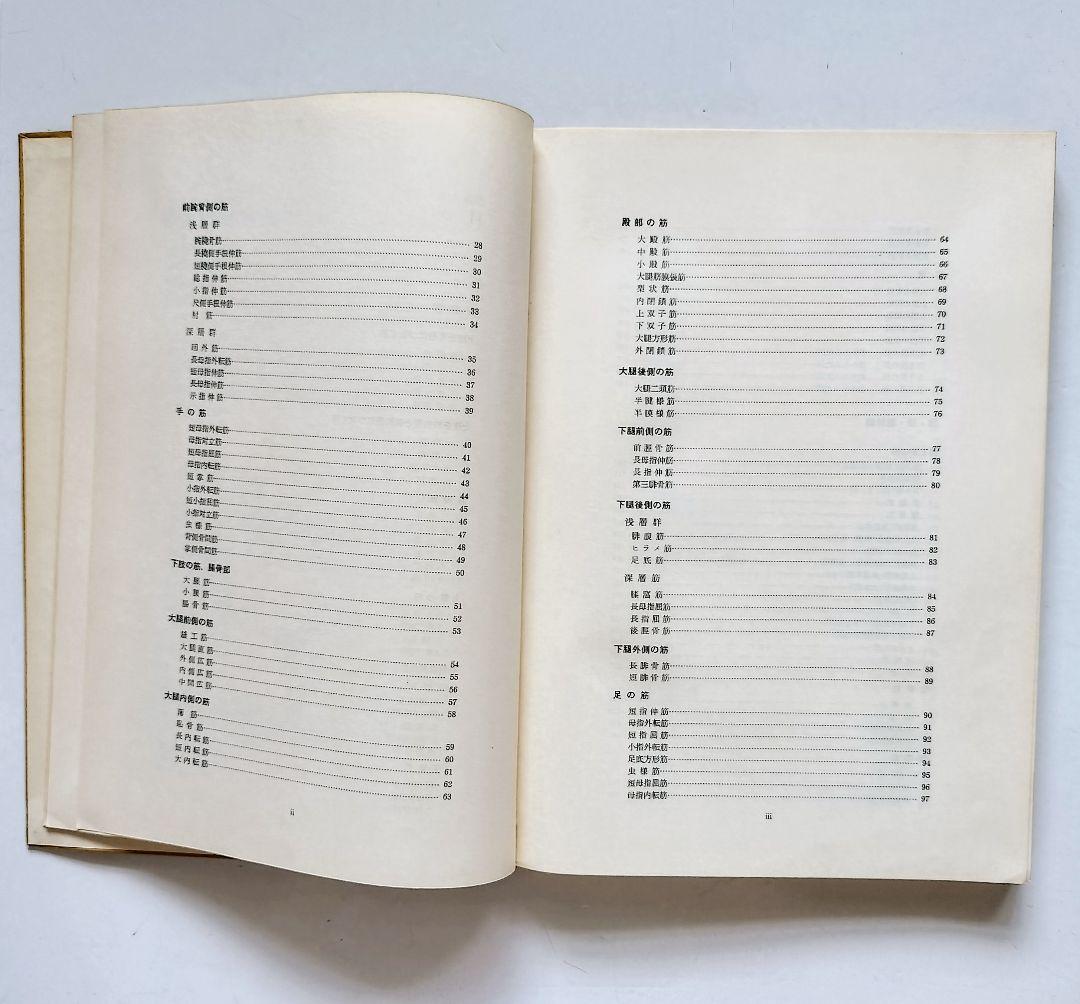 前腕背側の筋
浅層群
腕橈骨筋 28
長橈側手根伸筋 29
短橈側手根伸筋 30
総指伸筋 31
小指伸筋 32
尺側手根伸筋 33
肘筋 34
深層群
回外筋 35
長母指外転筋 36
短母指伸筋 37
長母指伸筋 38
示指伸筋 39
手の筋
短母指外転筋 40
母指対立筋 41
短母指屈筋 42
母指内転筋 43
短掌筋 44
小指外転筋 45
短小指屈筋 46
小指対立筋 47
虫様筋 48
背側骨間筋 49
掌側骨間筋 50
下肢の筋, 腸骨部
大腰筋 51
小腰筋 52
腸骨筋 53
大腿前側の筋
縫工筋 54
大腿直筋 55
外側広筋 56
内側広筋 57
中間広筋 58
大腿内側の筋
薄筋 59
恥骨筋 60
長内転筋 61
短内転筋 62
大内転筋 63
ii
殿部の筋
大殿筋 64
中殿筋 65
小殿筋 66
大腿筋膜張筋 67
梨状筋 68
内閉鎖筋 69
上双子筋 70
下双子筋 71
大腿方形筋 72
外閉鎖筋 73
大腿後側の筋
大腿二頭筋 74
半腱様筋 75
半膜様筋 76
下腿前側の筋
前脛骨筋 77
長母指伸筋 78
長指伸筋 79
第三腓骨筋 80
下腿後側の筋
浅層群
腓腹筋 81
ヒラメ筋 82
足底筋 83
深層筋
膝窩筋 84
長母指屈筋 85
長指屈筋 86
後脛骨筋 87
下腿外側の筋
長腓骨筋 88
短腓骨筋 89
足の筋
短指伸筋 90
母指外転筋 91
短指屈筋 92
小指外転筋 93
足底方形筋 94
虫様筋 95
短母指屈筋 96
母指内転筋 97
iii